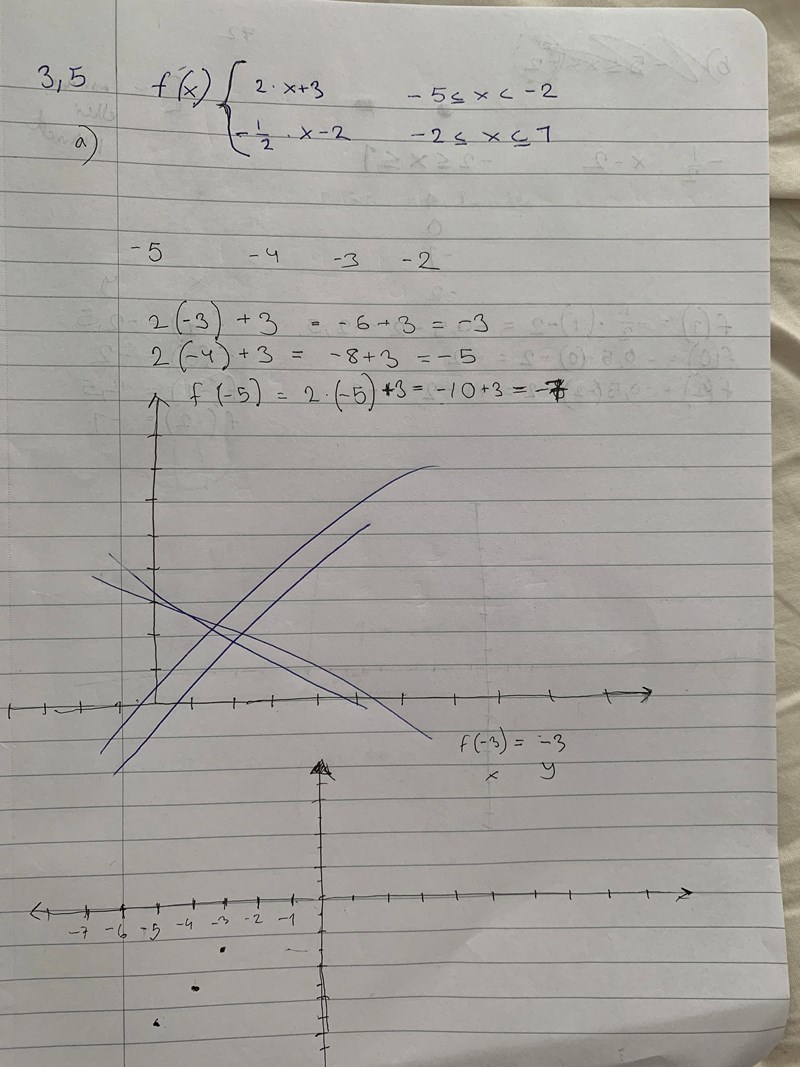 3,5 f(x) { 2 · x+3 -5 ≤ x < -2
a) -1/2 · x-2 -2 ≤ x ≤ 7
-5 -4 -3 -2
2(-3) + 3 = -6+3 = -3
2(-4)+3 = -8+3 = -5
f(-5) = 2·(-5)+3 = -10+3 = -7
f(-3) = -3
x y
-7 -6 -5 -4 -3 -2 -1